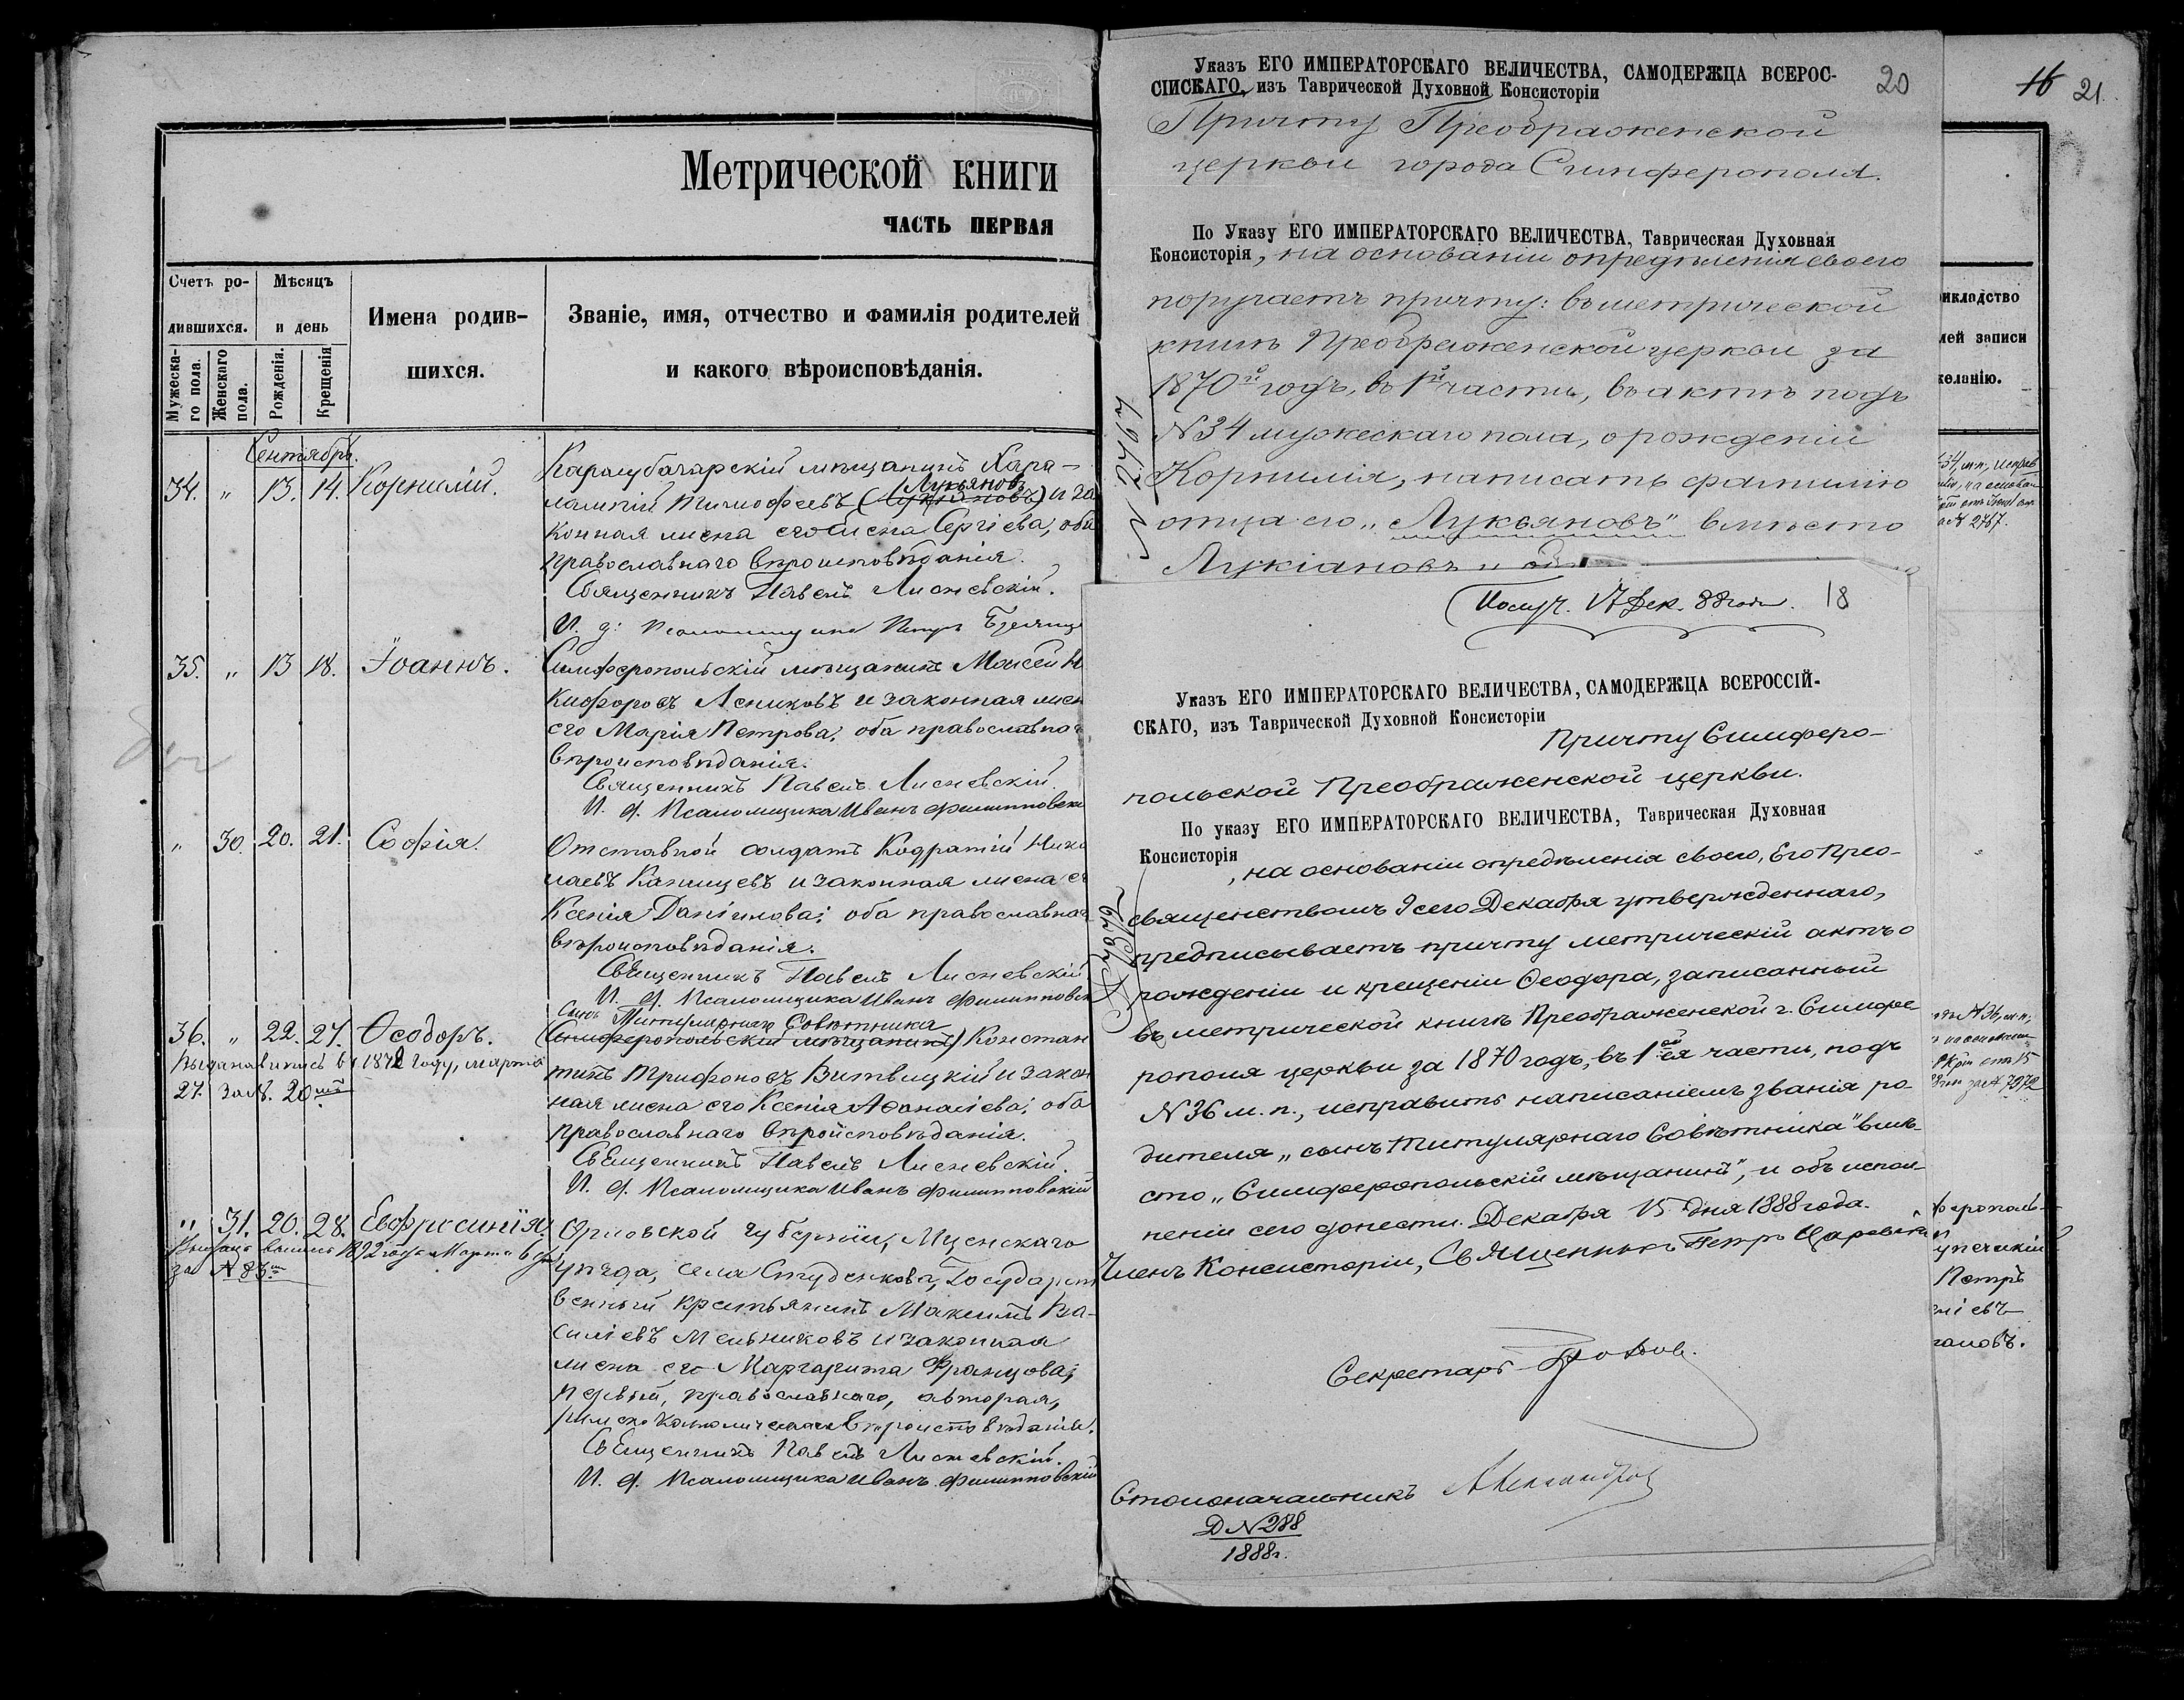 Метрической книги
ЧАСТЬ ПЕРВАЯ
Счетъ ро-
дившихся.
Мужеска-
го пола.
Женскаго
пола.
Мѣсяцъ
и день
Рожденія.
Крещенія
Имена родив-
шихся.
Званіе, имя, отчество и фамилія родителей
и какого вѣроисповѣданія.
Сентябрь.
34. " 13. 14. Корнилій.
Карасубазарскій мѣщанинъ Хара-
Лукьяновъ
лампій Тимофеевъ (Лукіановъ) и за
конная жена его Елена Сергіева, оба
православнаго вѣроисповѣданія.
Священникъ Павелъ Лисневскій.
И. д. Псаломщика Петръ
35. " 13 18. Іоаннъ.
Симферопольскій мѣщанинъ Моисей Н
кифоровъ Лсниковъ и законная жен
его Марія Петрова; оба православна
вѣроисповѣданія.
Священникъ Павелъ Лисневскій.
И. д. Псаломщика Иванъ Филипповск
" 30. 20. 21. Софія.
Отставной солдатъ Кодратій Нико
лаевъ Капищевъ и законная жена е
Ксенія Даніилова; оба православнаг
вѣроисповѣданія.
Священникъ Павелъ Лисневскій
И. д. Псаломщика Иванъ Филипповск
Сынъ Титулярнаго Совѣтника
36. " 22. 27. Ѳеодоръ.
(Симферопольскій мѣщанинъ) Констан
Выдана выпись въ 1872 году, марта
27. за №. 20мъ
тинъ Трифоновъ Витвицкій и закон
ная жена его Ксенія Аѳанасіева; оба
православнаго вѣроисповѣданія.
Священникъ Павелъ Лисневскій.
И. д. Псаломщика Иванъ Филипповскій
" 31. 20. 28. Евфросинія.
Выдана выпись 1892 года Марта 6 дня
за № 83
Орловской губерніи, Мценскаго
уѣзда, села Студенкова, Государст
венный крестьянинъ Максимъ Ва-
силіевъ Мельниковъ и законная
жена его Маргарита Францова;
первый, православнаго, а вторая,
римско католическаго вѣроисповѣданія.
Священникъ Павелъ Лисневскій.
И. д. Псаломщика Иванъ Филипповскій
20
Указъ ЕГО ИМПЕРАТОРСКАГО ВЕЛИЧЕСТВА, САМОДЕРЖЦА ВСЕРОС-
СІЙСКАГО, изъ Таврической Духовной Консисторіи
Причту Преображенской
церкви города Симферополя.
По Указу ЕГО ИМПЕРАТОРСКАГО ВЕЛИЧЕСТВА, Таврическая Духовная
Консисторія, на основаніи опредѣленія своего
поручаетъ причту: въ метрической
книгѣ Преображенской церкви за
1870й годъ, въ 1й части, въ актѣ подъ
№ 34 мужескаго пола, о рожденіи
Корнилія, написать фамилію
отца его "Лукьяновъ" вмѣсто
Лукіановъ и об
№ 2767
Получ. 17 Дек. 88 года. 18
Указъ ЕГО ИМПЕРАТОРСКАГО ВЕЛИЧЕСТВА, САМОДЕРЖЦА ВСЕРОССІЙ-
СКАГО, изъ Таврической Духовной Консисторіи
Причту Симферо-
польской Преображенской церкви.
По указу ЕГО ИМПЕРАТОРСКАГО ВЕЛИЧЕСТВА, Таврическая Духовная
Консисторія, на основаніи опредѣленія своего, Его Прео-
священствомъ 9 сего Декабря утвержденнаго,
предписываетъ причту метрическій актъ о
рожденіи и крещеніи Ѳеодора, записанный
въ метрической книгѣ Преображенской г. Симфе
рополя церкви за 1870 годъ, въ 1ой части, подъ
№ 36 м. п., исправить написаніемъ званія ро-
дителя "сынъ Титулярнаго Совѣтника" вмѣ-
сто "Симферопольскій мѣщанинъ", и объ испол-
неніи сего донести. Декабря 15 дня 1888 года.
Членъ Консисторіи, Священникъ Петръ Царевскій
№ 7372
Секретарь
Столоначальникъ Александров
Д № 288
1888 г.
16 21.
икладство
лей записи
желанію.
34, м.п., исправ
на основан
№ 2767.
№ 36, м.п.
15
№ 7972
ферополь-
купеческій
Петръ
иліевъ